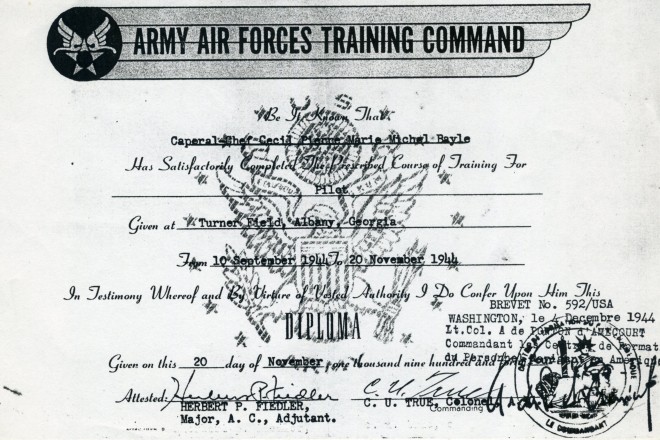 ARMY AIR FORCES TRAINING COMMAND
Be It Known That
Caporal-Chef Cecil Pierre Marie Michel Bayle
Has Satisfactorily Completed The Prescribed Course of Training For
Pilot
Given at Turner Field, Albany, Georgia
From 10 September 1944 To 20 November 1944
In Testimony Whereof and By Virtue of Vested Authority I Do Confer Upon Him This
DIPLOMA
BREVET No. 592/USA
WASHINGTON, le 4 Decembre 1944
Lt.Col. A de PONTON d'AMECOURT
Commandant le Centre de Format
du Personnel en Amérique
Given on this 20 day of November one thousand nine hundred and forty
Attested: Herbert P. Fiedler
HERBERT P. FIEDLER,
Major, A. C., Adjutant.
C. U. True
C. U. TRUE, Colonel
Commanding
LE COMMANDANT